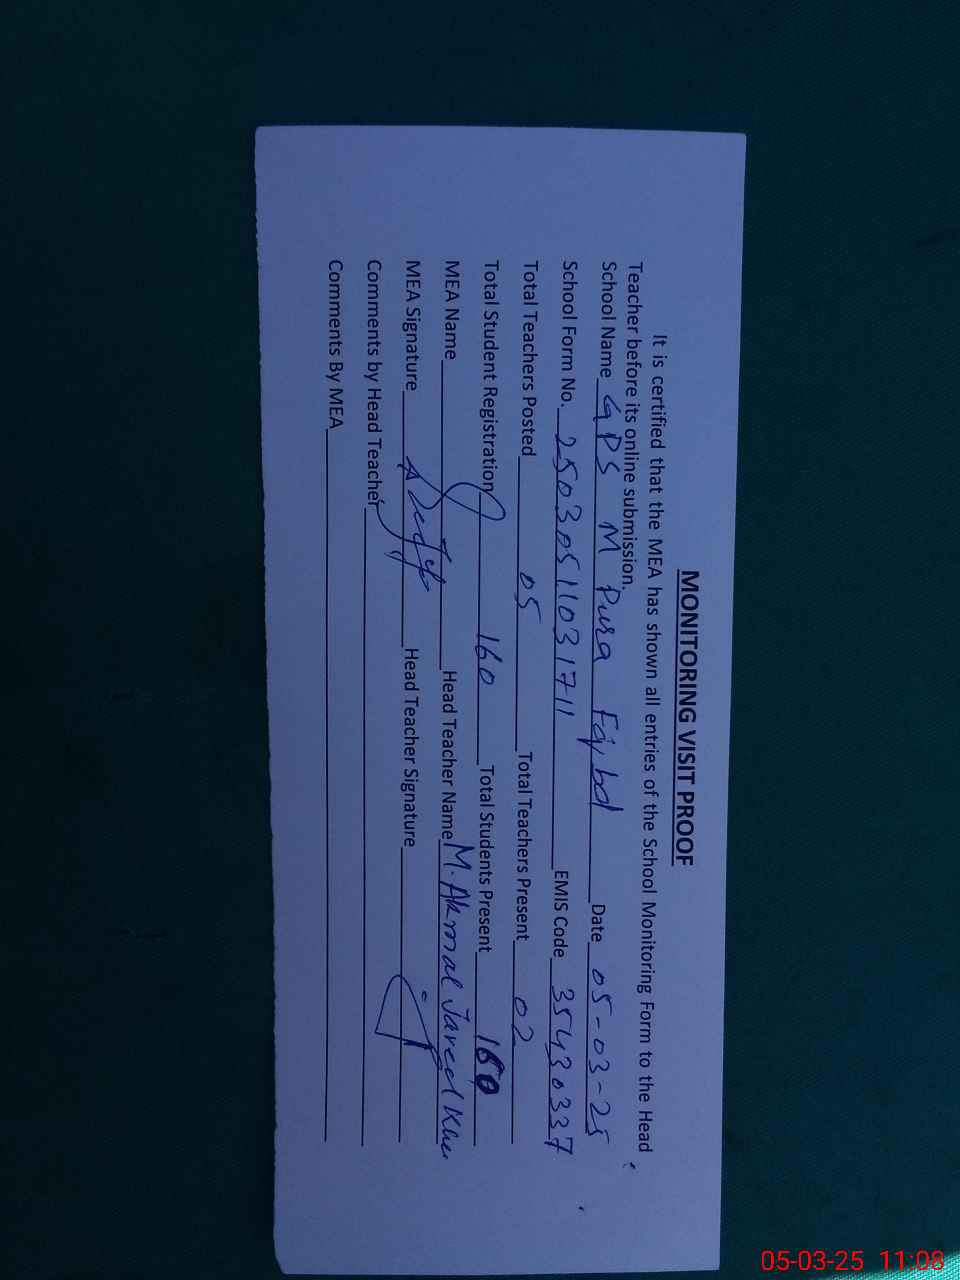 MONITORING VISIT PROOF
It is certified that the MEA has shown all entries of the School Monitoring Form to the Head
Teacher before its online submission.
School Name GPS M Pura Date 05-03-25
School Form No. 25030511031711 EMIS Code 35430337
Total Teachers Posted 05 Total Teachers Present 02
Total Student Registration 160 Total Students Present 160
MEA Name Head Teacher Name M. Akmal Javed
MEA Signature Head Teacher Signature
Comments by Head Teacher
Comments By MEA
05-03-25 11:08